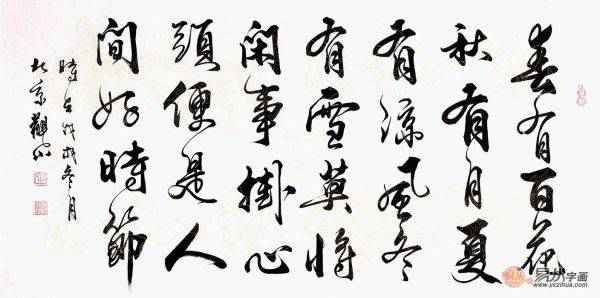 春有百花
秋有月夏
有涼風冬
有雪莫將
閑事掛心
頭便是人
間好時節
易从字画
www.yczihua.com